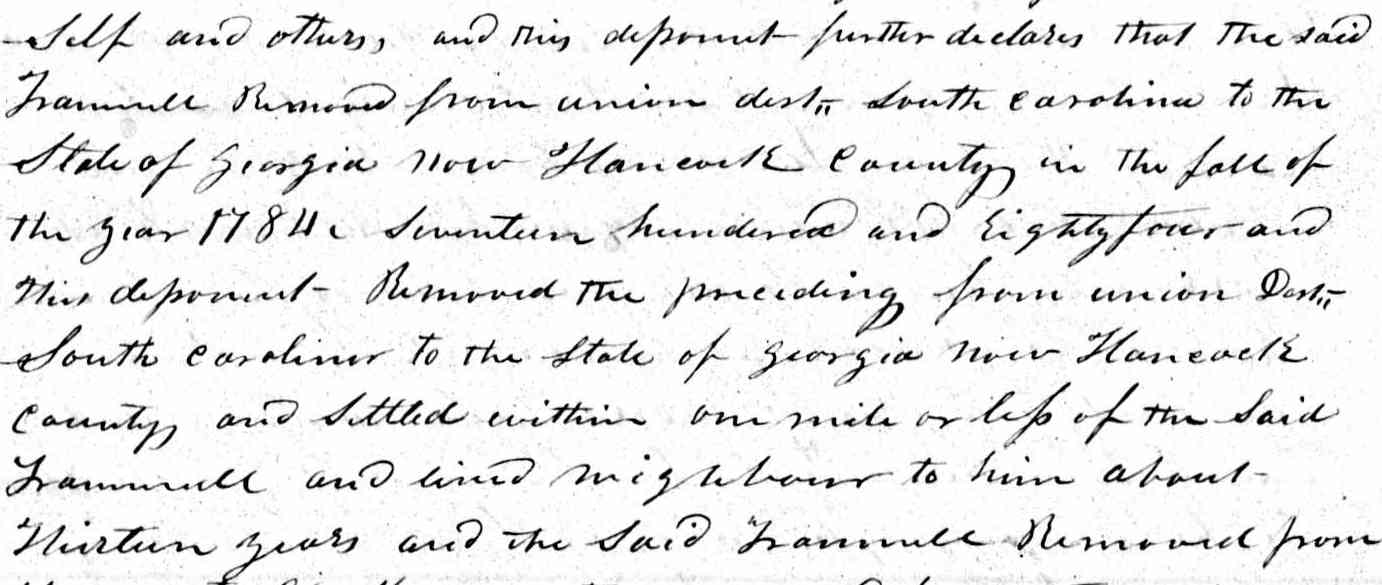 Self and others, and this deponent further declares that the said
Trammell Removed from union dest,, South carolina to the
State of georgia now Hancock County in the fall of
the year 1784, Seventeen hundered and Eighty four and
This deponent Removed the preceding from union Dest,,
South carolina to the State of georgia now Hancock
County, and Settled within one mile or less of the Said
Trammell and lived neighbour to him about
Thirteen years and the Said Trammell Removed from